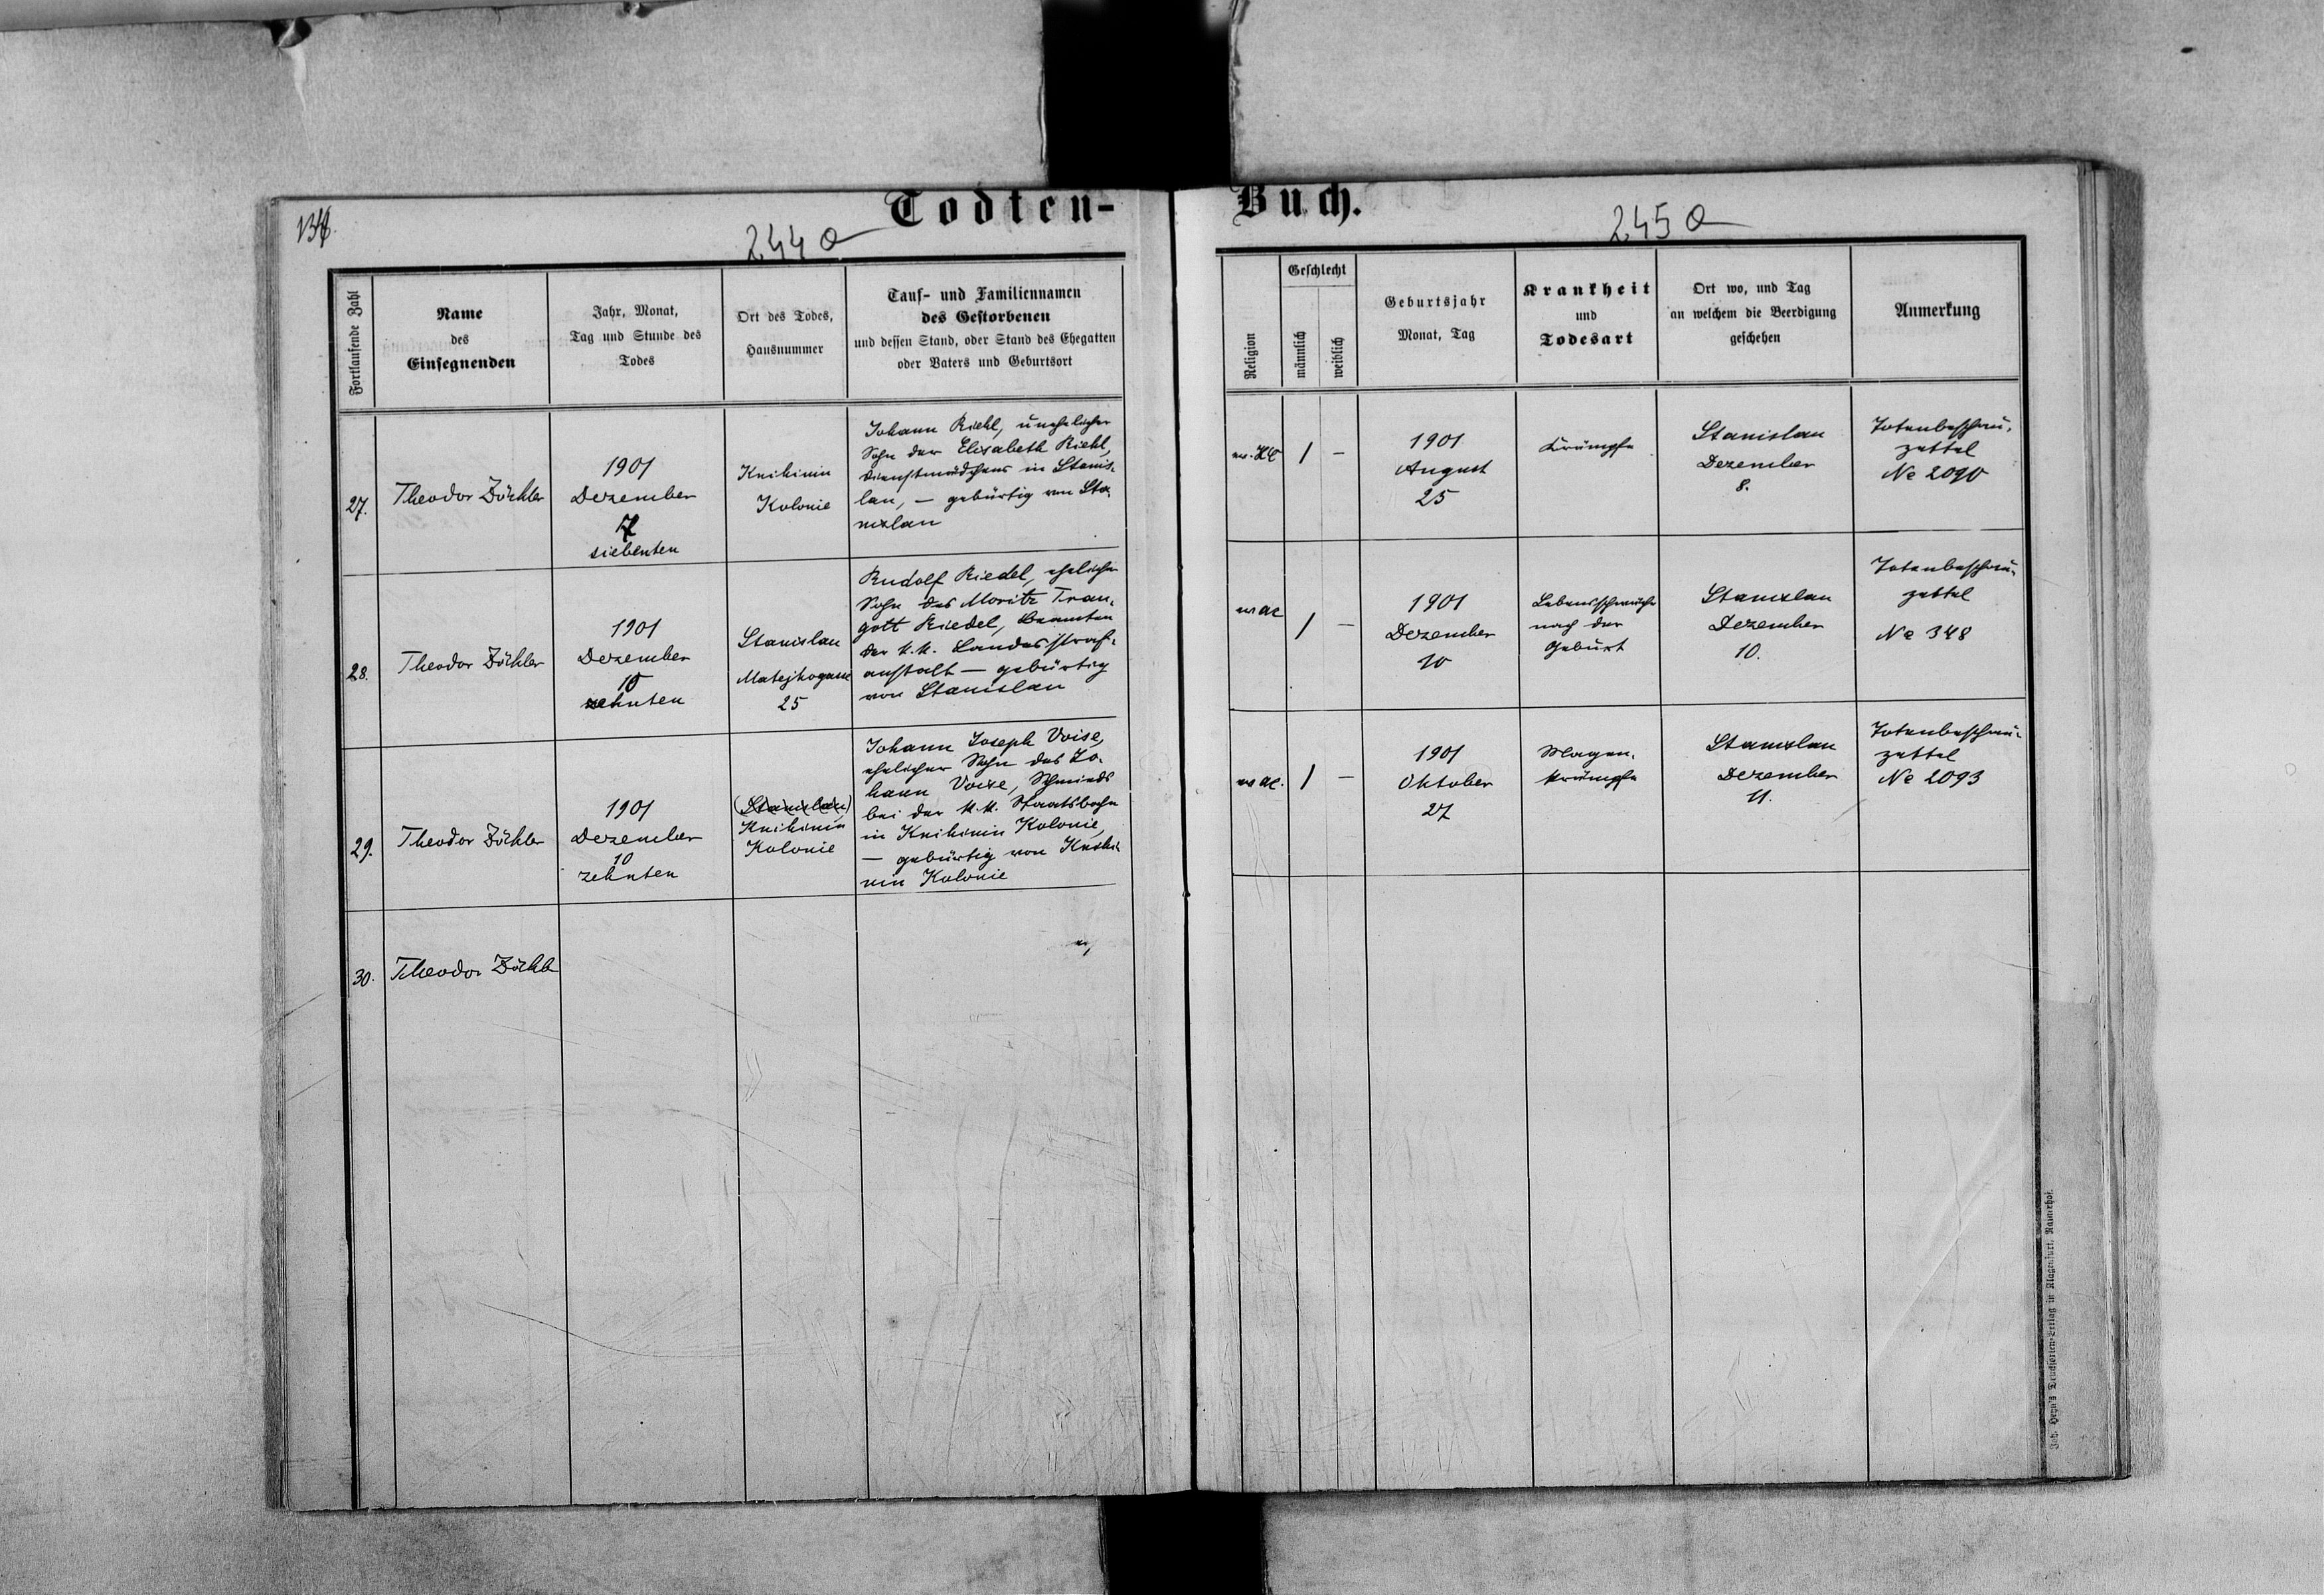 Todten-
244a
Fortlaufende Zahl
Name
des
Einsegnenden
Jahr, Monat,
Tag und Stunde des
Todes
Ort des Todes,
Hausnummer
Tauf- und Familiennamen
des Gestorbenen
und dessen Stand, oder Stand des Ehegatten
oder Vaters und Geburtsort
27.
Theodor Zöckler
1901
Dezember
7
siebenten
Knihinin
Kolonie
Johann Riehl, unehelicher
Sohn der Elisabeth Riehl,
Dienstmädchens in Stanis-
lau, — gebürtig von Sta-
nislau
28.
Theodor Zöckler
1901
Dezember
10
zehnten
Stanislau
Matejkogasse
25
Rudolf Riedel, ehelicher
Sohn des Moritz Trau-
gott Riedel, Beamten
der k.k. Landesstraf-
anstalt — gebürtig
von Stanislau
29.
Theodor Zöckler
1901
Dezember
10
zehnten
(Stanislau)
Knihinin
Kolonie
Johann Joseph Voise,
ehelicher Sohn des Jo-
hann Voise, Schmieds
bei der k.k. Staatsbahn
in Knihinin Kolonie,
— gebürtig von Knihi-
nin Kolonie
30.
Theodor Zöckler
Buch.
245a
Religion
Geschlecht
männlich
weiblich
Geburtsjahr
Monat, Tag
Krankheit
und
Todesart
Ort wo, und Tag
an welchem die Beerdigung
geschehen
Anmerkung
ev. HC
1
—
1901
August
25
Krämpfe
Stanislau
Dezember
8.
Totenbeschau-
zettel
No 2090
ev AC
1
—
1901
Dezember
10
Lebensschwäche
nach der
Geburt
Stanislau
Dezember
10.
Totenbeschau-
zettel
No 348
ev AC.
1
—
1901
Oktober
27
Magen-
krämpfe
Stanislau
Dezember
11.
Totenbeschau-
zettel
No 2093
Joh. Heyn's Drucksorten-Verlag in Klagenfurt, Rainerhof.